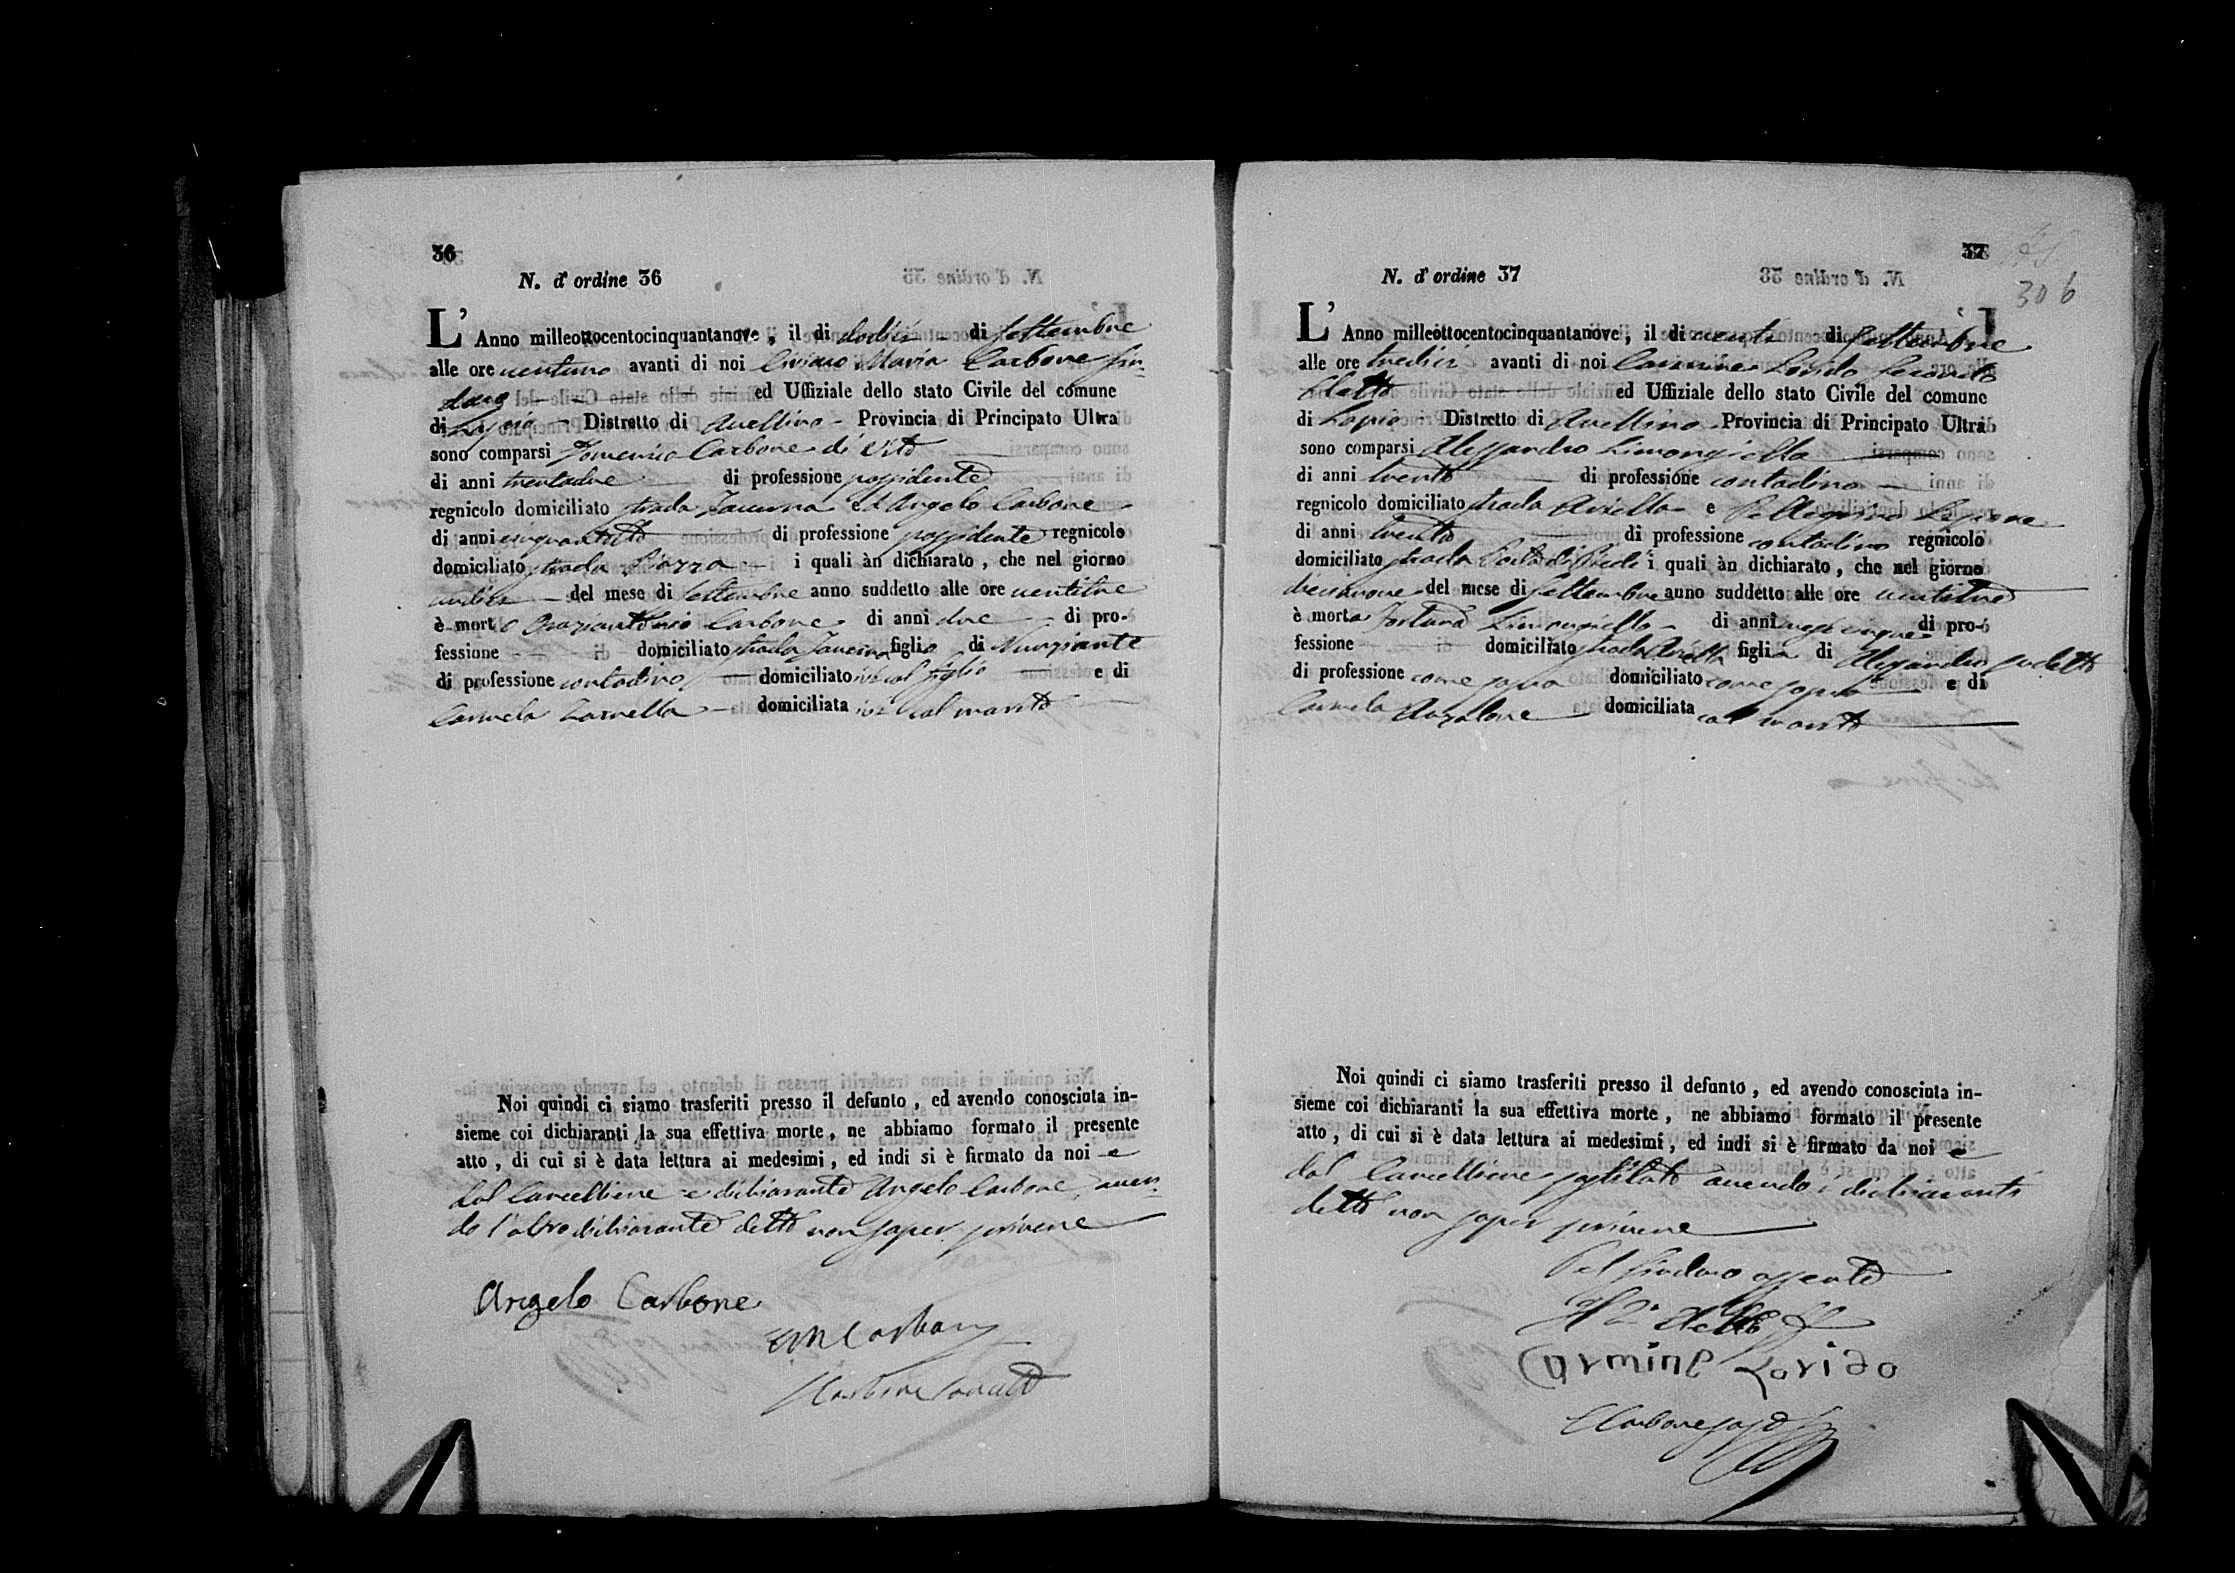 36
N. d' ordine 36
L' Anno milleottocentocinquantanove, il dì dodici di Settembre
alle ore ventuno avanti di noi Ciriaco Maria Carbone Sin-
daco ed Uffiziale dello stato Civile del comune
di Lapio Distretto di Avellino Provincia di Principato Ultra
sono comparsi Domenico Carbone di Vito
di anni trentadue di professione possidente
regnicolo domiciliato strada ed Angelo Carbone
di anni cinquantotto di professione possidente regnicolo
domiciliato strada Piazza i quali àn dichiarato, che nel giorno
undici del mese di Settembre anno suddetto alle ore ventitre
è morto Oraziantonio Carbone di anni due di pro-
fessione domiciliato strada figlio di Nunziante
di professione contadino domiciliato ivi col figlio e di
Carmela domiciliata ivi col marito
Noi quindi ci siamo trasferiti presso il defunto, ed avendo conosciuta in-
sieme coi dichiaranti la sua effettiva morte, ne abbiamo formato il presente
atto, di cui si è data lettura ai medesimi, ed indi si è firmato da noi e
dal Cancelliere e dichiarante Angelo Carbone, aven-
do l'altro dichiarante detto non saper scrivere
Angelo Carbone
CM Carbone
37
306
N. d' ordine 37
L' Anno milleottocentocinquantanove, il dì venti di Settembre
alle ore tredici avanti di noi Carmine Lorido Secondo
Eletto ed Uffiziale dello stato Civile del comune
di Lapio Distretto di Avellino Provincia di Principato Ultra
sono comparsi Alessandro Limongiello
di anni trenta di professione contadino
regnicolo domiciliato strada Ariella e Pellegrino
di anni trenta di professione contadino regnicolo
domiciliato strada i quali àn dichiarato, che nel giorno
diecinove del mese di Settembre anno suddetto alle ore ventitre
è morta Fortuna Limongiello di anni mesi cinque di pro-
fessione domiciliato strada Ariella figlia di Alessandro sudetto
di professione come sopra domiciliato come sopra e di
Carmela Anzalone domiciliata col marito
Noi quindi ci siamo trasferiti presso il defunto, ed avendo conosciuta in-
sieme coi dichiaranti la sua effettiva morte, ne abbiamo formato il presente
atto, di cui si è data lettura ai medesimi, ed indi si è firmato da noi e
dal Cancelliere sostituto avendo i dichiaranti
detto non saper scrivere
Pel Sindaco assente
Il 2° Eletto
Carmine Lorido